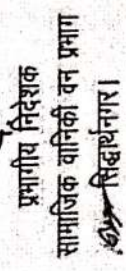 प्रभागीय निदेशक
सामाजिक वानिकी वन प्रभाग
सिद्धार्थनगर।